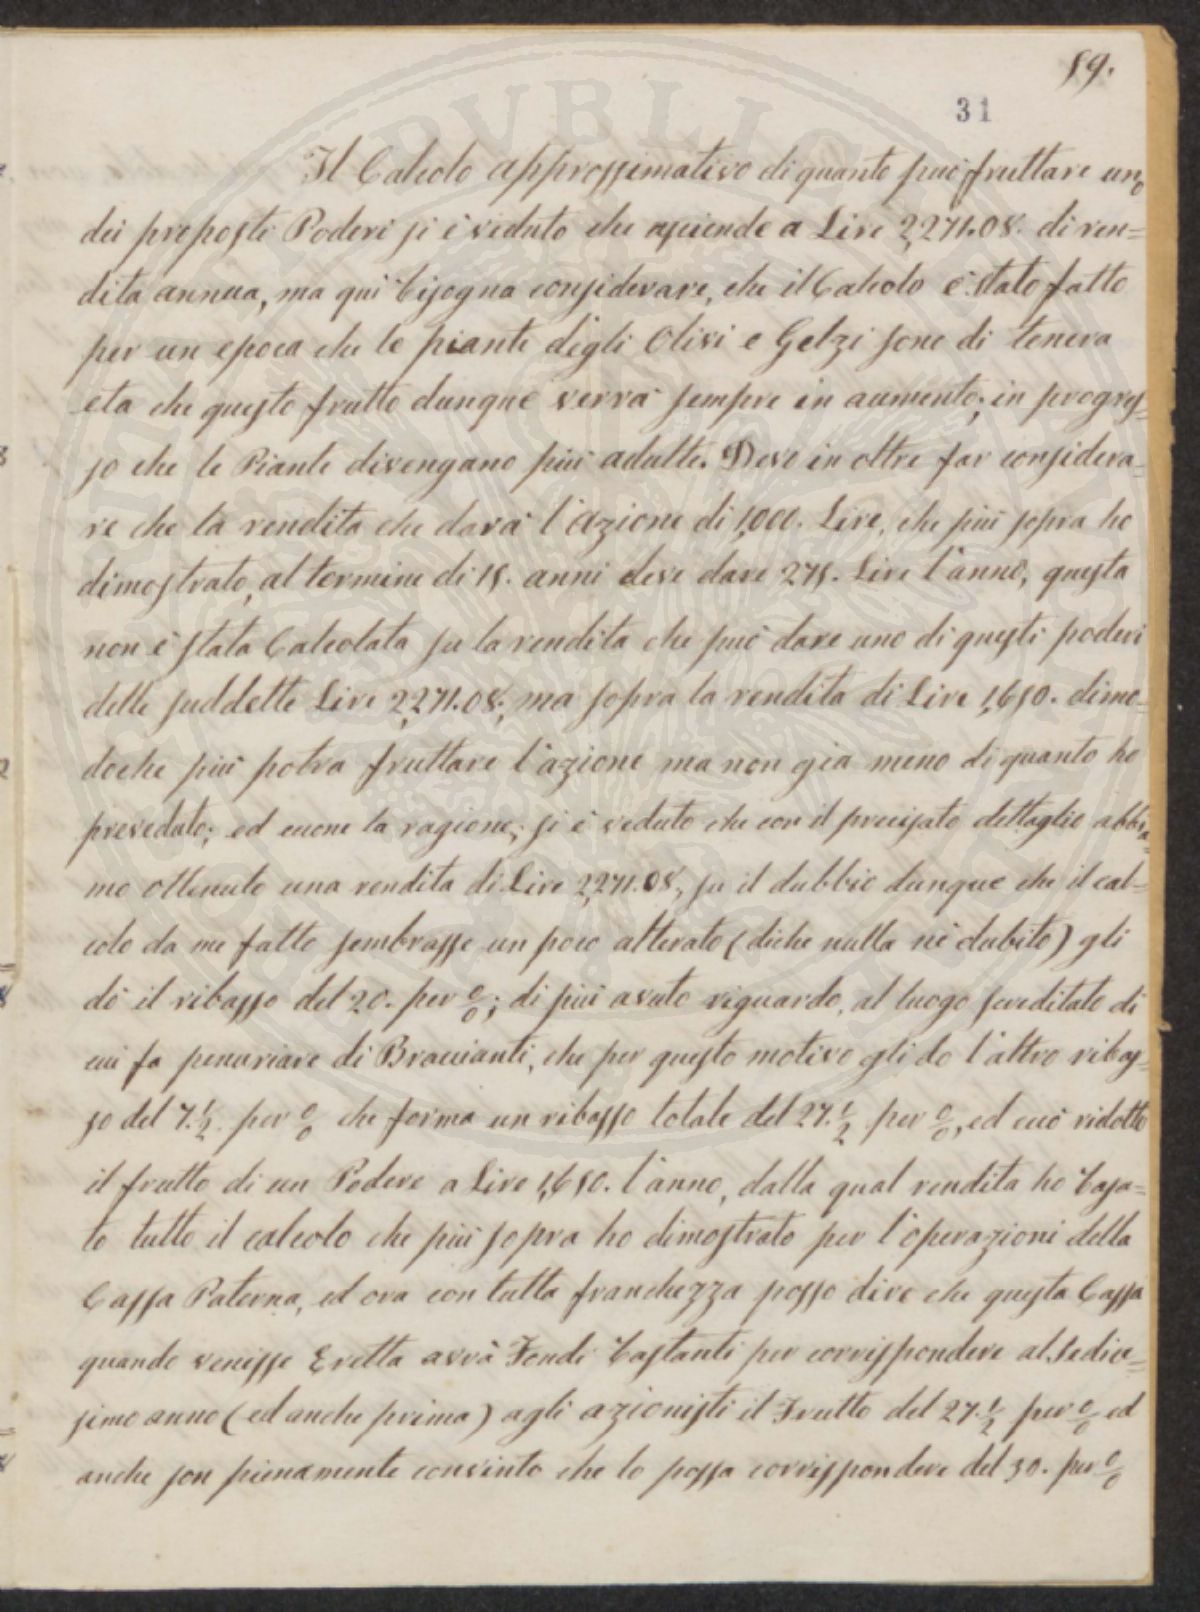 59.
31
Il Calcolo approssimativo di quanto può fruttare uno
dei proposti Poderi si è veduto che asciende a Lire 2,271.08. di ren=
dita annua, ma quì bisogna considerare, che il Calcolo è stato fatto
per un epoca che le piante degli Olivi e Gelzi sono di tenera
eta che questo frutto dunque verrà sempre in aumento; in progres=
so che le Piante divengano più adulte. Devo in oltre far considera=
re che la rendita che darà l'azione di 1,000. Lire, che più sopra ho
dimostrato, al termine di 15. anni deve dare 275. Lire l'anno, questa
non è stata Calcolata su la rendita che può dare uno di questi poderi
delle suddette Lire 2,271.08; ma sopra la rendita di Lire 1,650. dimo=
doche più potra fruttare l'azione ma non gia meno di quanto ho
preveduto; ed eccone la ragione; si è veduto che con il precisato dettaglio abbia=
mo ottenuto una rendita di Lire 2,271.08, su il dubbio dunque che il cal=
colo da me fatto sembrasse un poco alterato (diche nulla nè dubito) gli
dò il ribasso del 20. per 0/0; di più avuto riguardo, al luogo screditato di
cui fa penuriare di Braccianti, che per questo motivo gli do l'altro ribas=
so del 7.1/2 per 0/0 che forma un ribasso totale del 27.1/2 per 0/0, ed ecco ridotto
il frutto di un Podere a Lire 1,650. l'anno, dalla qual rendita ho basa=
to tutto il calcolo che più sopra ho dimostrato per l'operazioni della
Cassa Paterna, ed ora con tutta franchezza posso dire che questa Cassa
quando venisse Eretta avrà Fondi bastanti per corrisspondere al Sedice=
simo anno (ed anche prima) agli azionisti il Frutto del 27.1/2 per 0/0 ed
anche son pienamente convinto che lo possa corrisspondere del 30. per 0/0